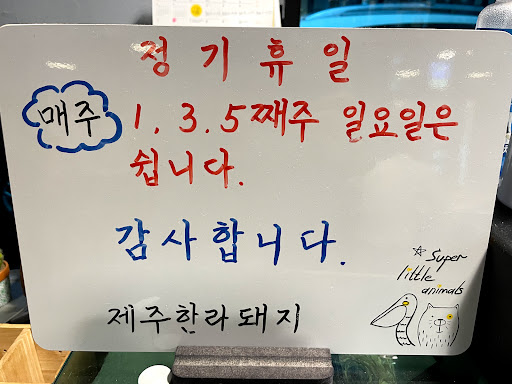 정기휴일
매주 1, 3, 5째주 일요일은
쉽니다.
감사합니다.
☆ Super
little
animals
제주한라돼지